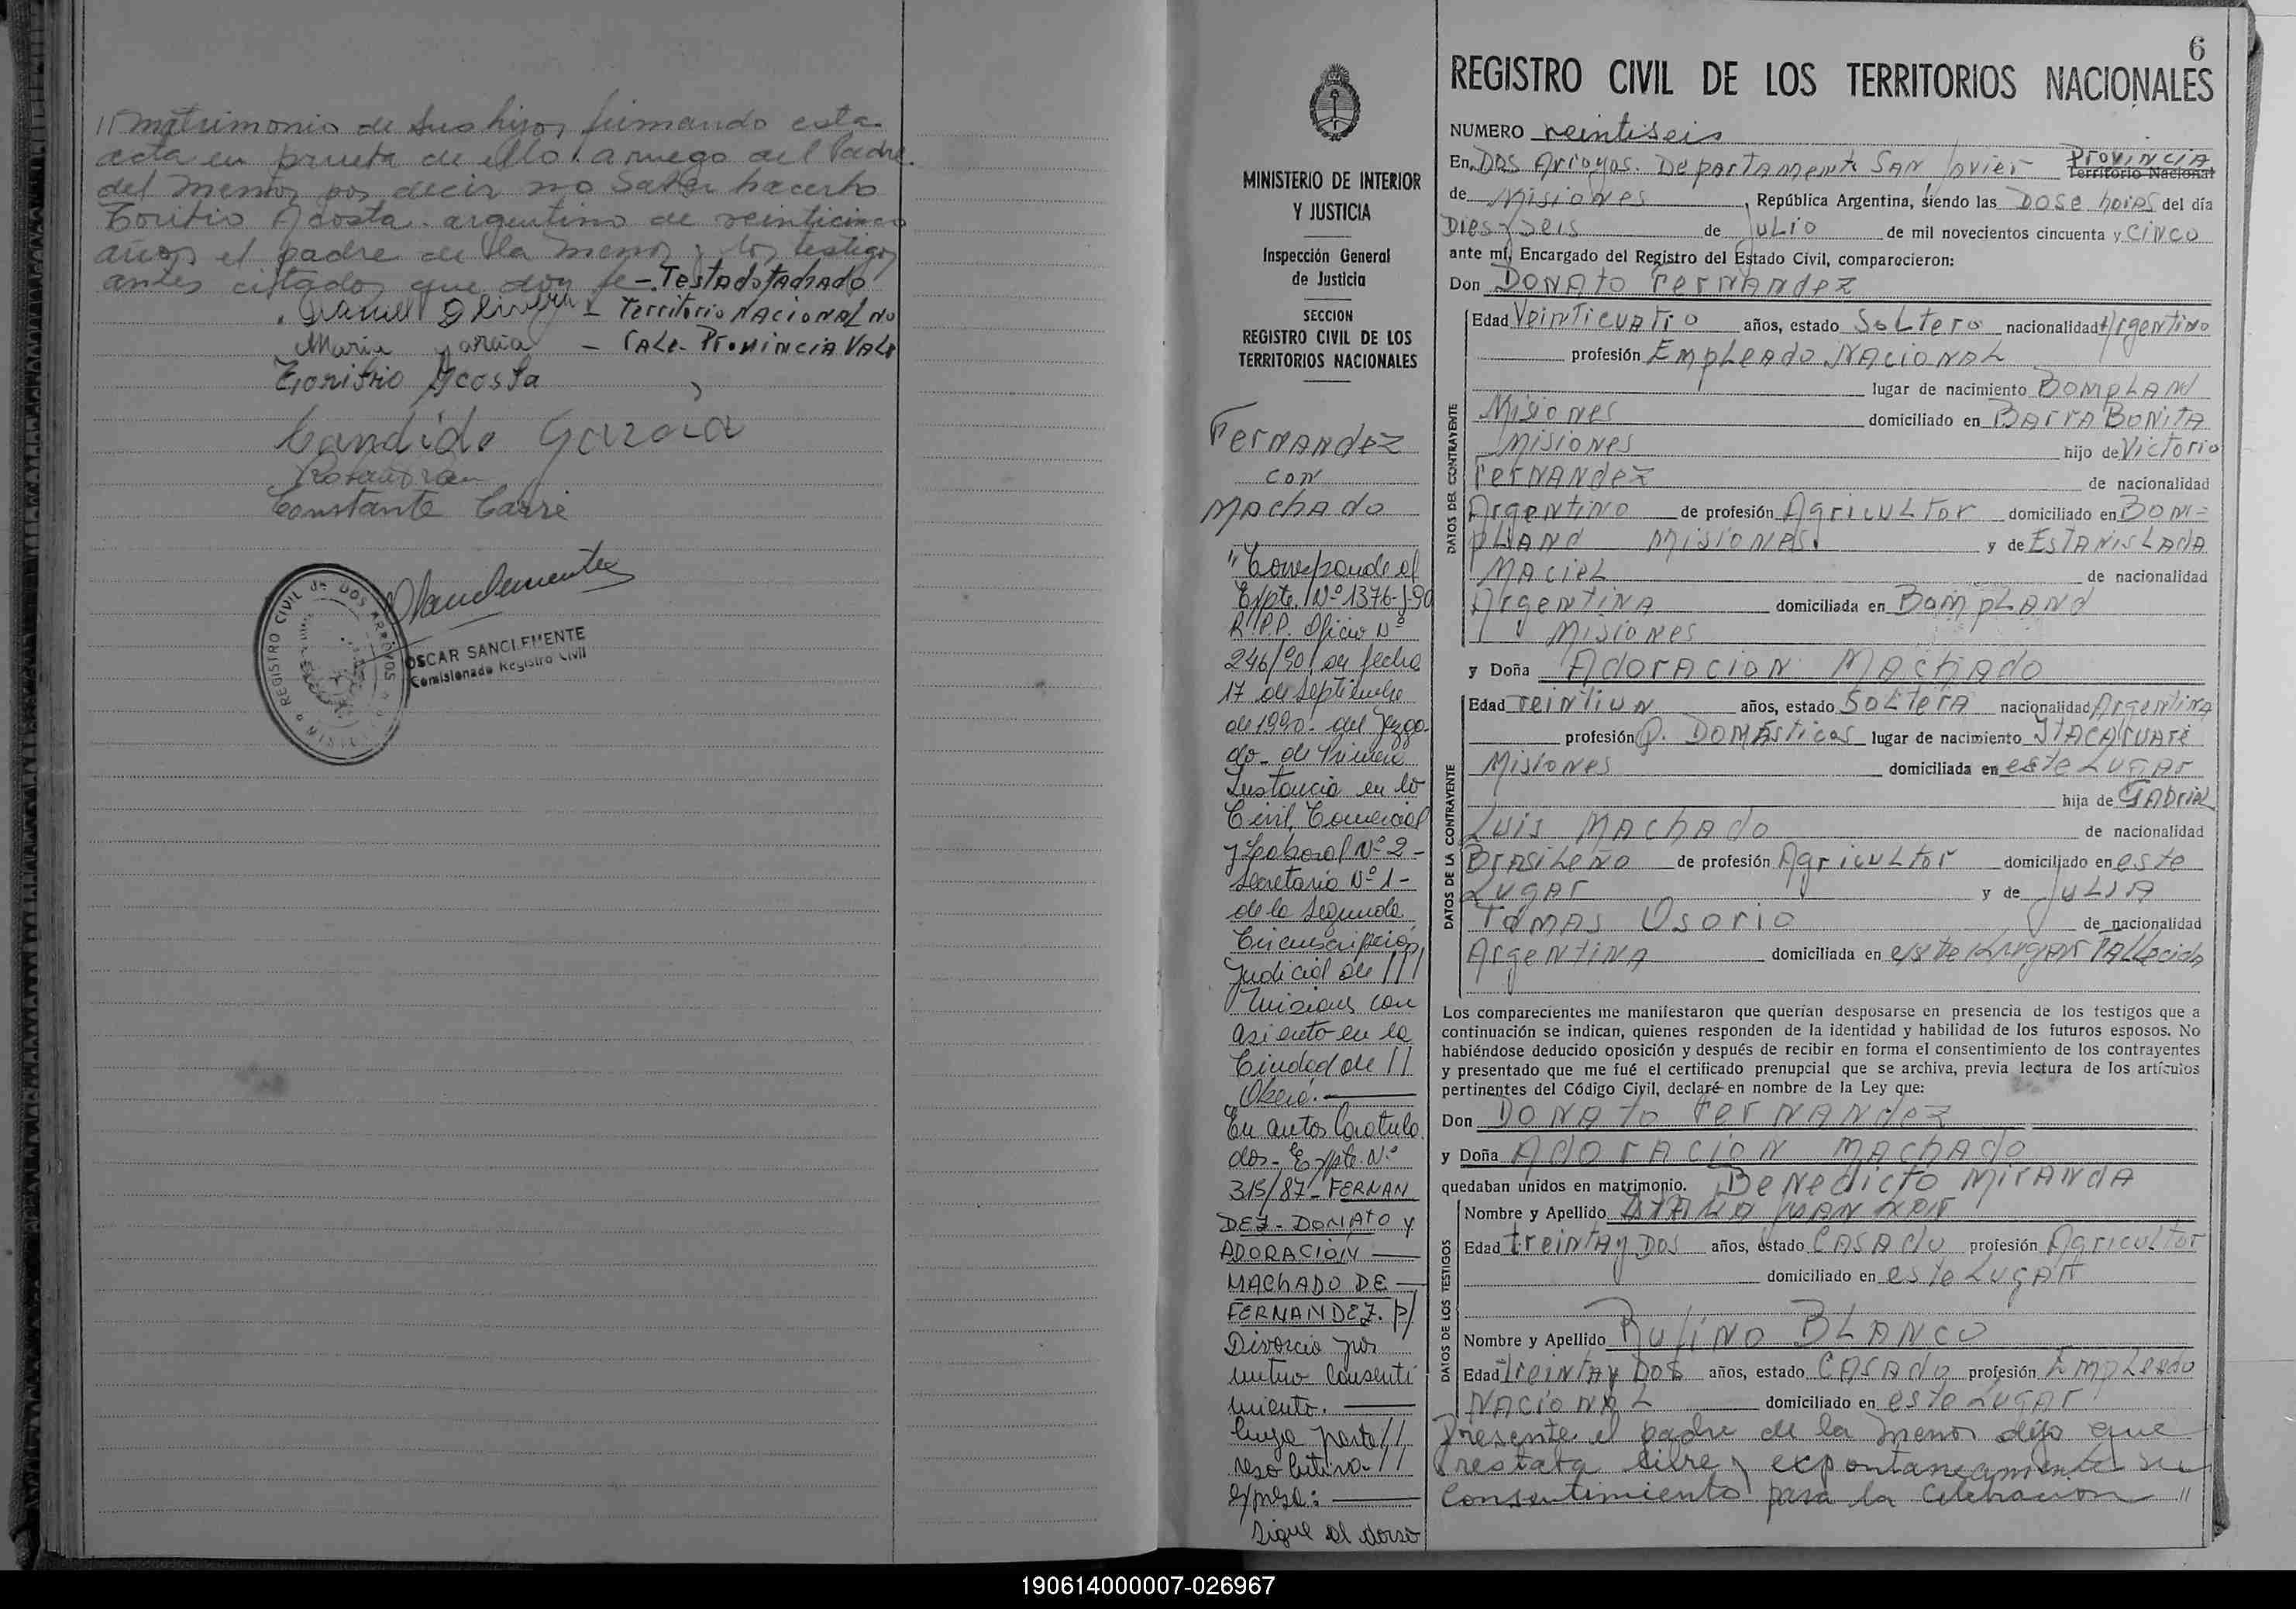 // matrimonio de sus hijos firmando esta
acta en prueba de ello. a ruego del Padre.
del menor por decir no saber hacerlo
Toribio Acosta. argentino de veinticinco
años el padre de la menor y los testigos
antes citados que doy fe - Testado tachado
Daniel Olivera - Territorio Nacional no
Maria Garcia - Vale. Provincia Vale
Toribio Acosta
Candido Garcia
Constante Carré
REGISTRO CIVIL de DOS ARROYOS
OSCAR SANCLEMENTE
Comisionado Registro Civil
6
MINISTERIO DE INTERIOR
Y JUSTICIA
Inspección General
de Justicia
SECCION
REGISTRO CIVIL DE LOS
TERRITORIOS NACIONALES
Fernandez
con
Machado
"Corresponde al
Expte. Nº 1376-J-90
R.P.P. Oficio Nº
246/90 de fecha
17 de septiembre
de 1990. del Juzga-
do - de Primera
Instancia en lo
Civil, Comercial
y Laboral Nº 2 -
Secretaria Nº 1 -
de la Segunda
Circunscripción
Judicial de ///
Misiones con
asiento en la
Ciudad de //
Oberá.
En autos Caratula
dos - Expte. Nº
315/87 - FERNAN
DEZ - DONATO y
ADORACIÓN
MACHADO DE
FERNANDEZ. p/
Divorcio por
mutuo Consenti
miento.
Cuya parte //
resolutiva - //
expresa:
Sigue al dorso
REGISTRO CIVIL DE LOS TERRITORIOS NACIONALES
NUMERO veintiseis
En Dos Arroyos. Departamento San Javier Provincia Territorio Nacional
de Misiones, República Argentina, siendo las DOSE horas del día
Dies y seis de JULIO de mil novecientos cincuenta y CINCO
ante mí, Encargado del Registro del Estado Civil, comparecieron:
Don DONATO FERNANDEZ
DATOS DEL CONTRAYENTE
Edad Veinticuatro años, estado Soltero nacionalidad Argentino
profesión Empleado Nacional
lugar de nacimiento Bompland
Misiones domiciliado en Barra Bonita
Misiones hijo de Victorio
Fernandez de nacionalidad
Argentino de profesión Agricultor domiciliado en Bom-
pland Misiones. y de Estanislada
Maciel de nacionalidad
Argentina domiciliada en Bompland
Misiones
y Doña Adoracion Machado
DATOS DE LA CONTRAYENTE
Edad veintiun años, estado Soltera nacionalidad Argentina
profesión Q. Domésticos lugar de nacimiento Itacaruaré
Misiones domiciliada en este Lugar
hija de Gabriel
Luis Machado de nacionalidad
Brasileño de profesión Agricultor domiciliado en este
Lugar y de Julia
Tomas Osorio de nacionalidad
Argentina domiciliada en este Lugar Fallecida
Los comparecientes me manifestaron que querían desposarse en presencia de los testigos que a
continuación se indican, quienes responden de la identidad y habilidad de los futuros esposos. No
habiéndose deducido oposición y después de recibir en forma el consentimiento de los contrayentes
y presentado que me fué el certificado prenupcial que se archiva, previa lectura de los artículos
pertinentes del Código Civil, declaré en nombre de la Ley que:
Don DONATO FERNANDEZ
y Doña Adoracion Machado
quedaban unidos en matrimonio. Benedicto Miranda
DATOS DE LOS TESTIGOS
Nombre y Apellido
Edad treinta y Dos años, estado Casado profesión Agricultor
domiciliado en este Lugar
Nombre y Apellido Rufino Blanco
Edad treinta y Dos años, estado Casado profesión Empleado
Nacional domiciliado en este Lugar
Presente el padre de la menor dijo que
Prestaba libre y expontaneamente su
Consentimiento para la celebracion //
190614000007-026967